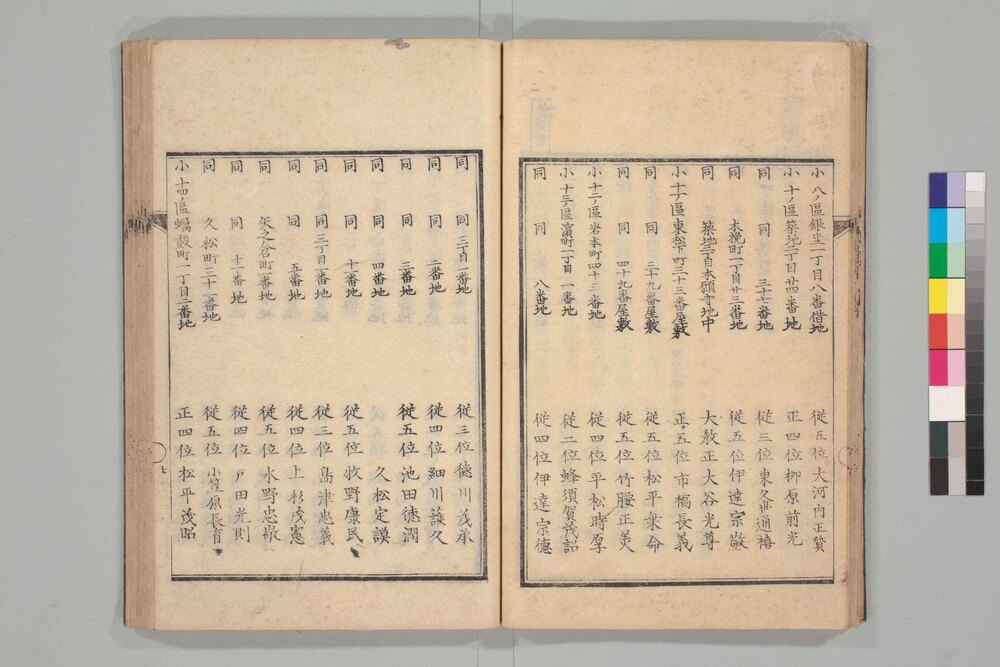 小八ノ區銀坐一丁目八番借地 從五位大河內正質
小十ノ區築地二丁目廿四番地 正四位柳原前光
同 同 三十七番地 從三位東久世通禧
同 木挽町一丁目廿三番地 從五位伊達宗敬
同 築地三丁目本願寺地中 大敎正大谷光尊
小十一ノ區東松下町三十三番屋敷 正五位市橋長義
同 同 三十九番屋敷 從五位松平乘命
同 同 四十九番屋敷 從五位竹腰正美
小十二ノ區岩本町四十三番地 從四位平松時厚
小十三ノ區濱町一丁目一番地 從二位蜂須賀茂韶
同 同 八番地 從四位伊達宗德
同 同 二丁目一番地 從三位德川茂承
同 同 二番地 從四位細川護久
同 同 三番地 從五位池田德潤
同 同 四番地 久松定謨
同 同 十一番地 從五位牧野康民
同 同 三丁目一番地 從三位島津忠義
同 同 五番地 從四位上杉茂憲
同 矢之倉町一番地 從五位水野忠敬
同 同 十一番地 從四位戶田光則
同 久松町三十一番地 從五位小笠原長育
小十四ノ區蠣殼町一丁目二番地 正四位松平茂昭
七